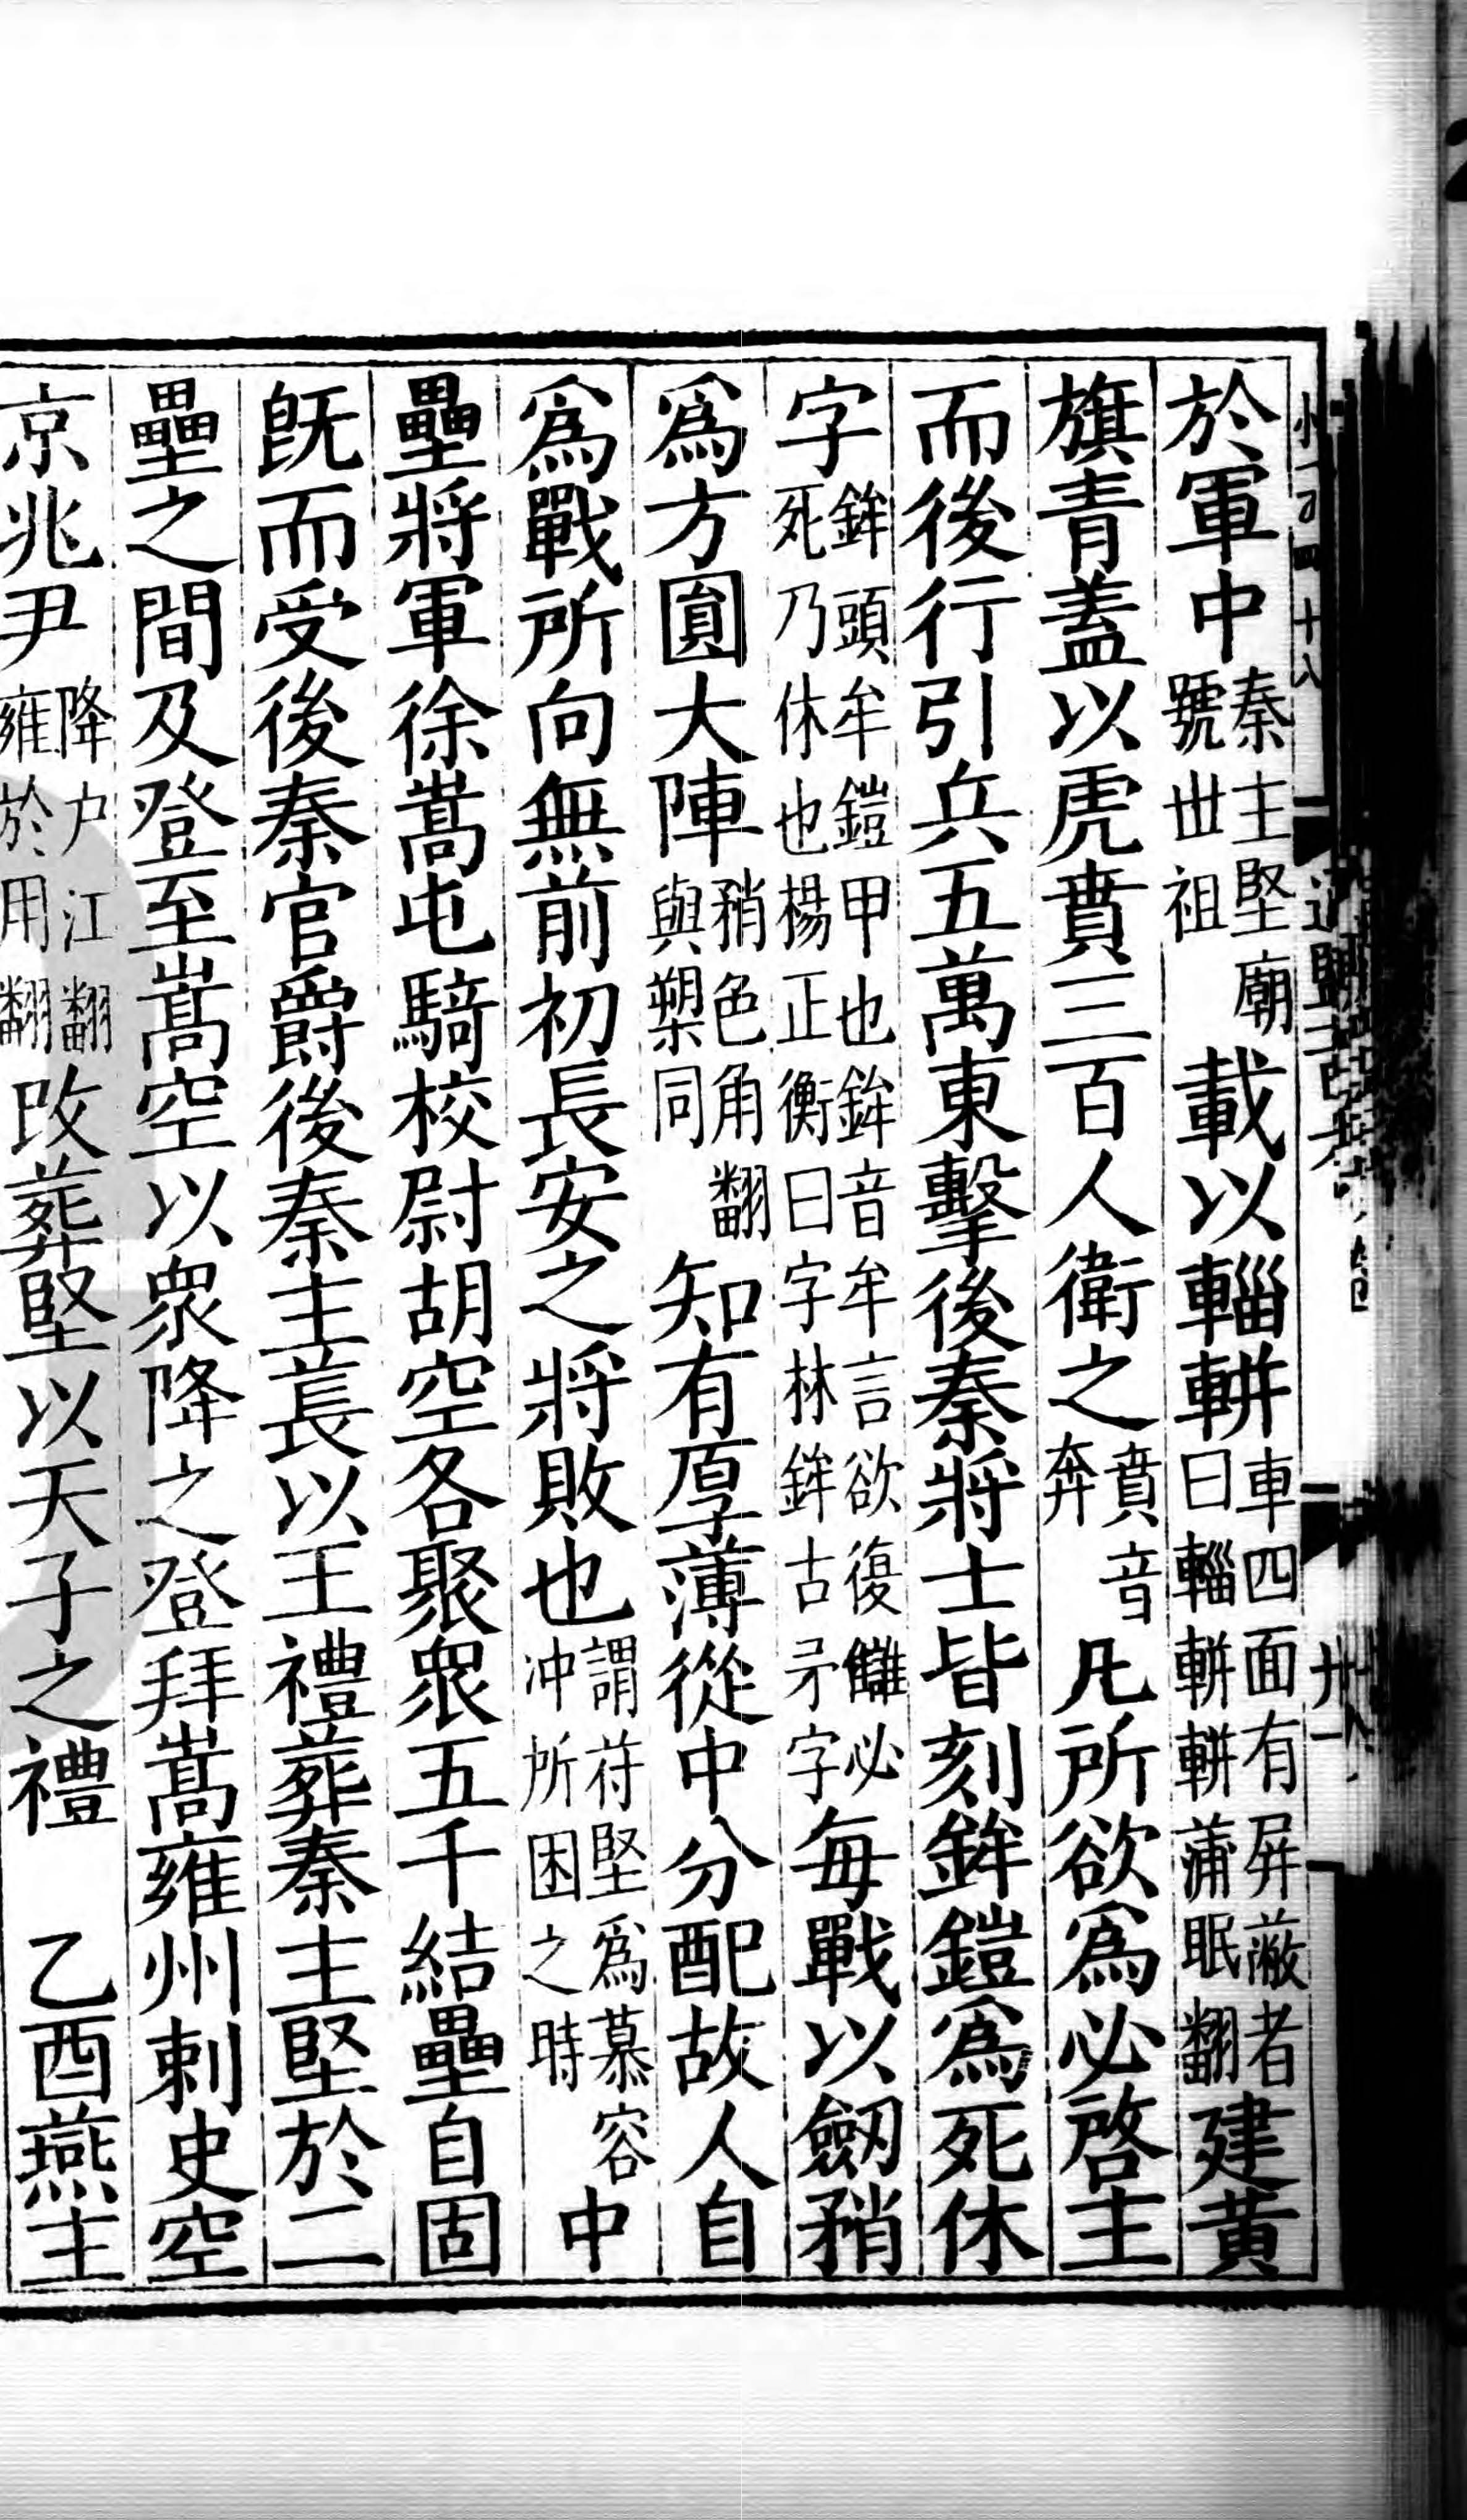 於軍中秦主堅廟號世祖載以輜軿車四面有屏蔽者曰輜軿軿蒲眠翻建黄
旗青蓋以虎賁三百人衛之賁音奔凡所欲爲必啓主
而後行引兵五萬東擊後秦將士皆刻鉾鎧爲死休
字鉾頭牟鎧甲也鉾音牟言欲復讎必死乃休也楊正衡曰字林鉾古矛字每戰以劔矟
爲方圓大陣矟色角翻與槊同知有厚薄從中分配故人自
爲戰所向無前初長安之將敗也謂苻堅爲慕容冲所困之時中
壘將軍徐嵩屯騎校尉胡空各聚衆五千結壘自固
旣而受後秦官爵後秦主萇以王禮葬秦主堅於二
壘之間及登至嵩空以衆降之登拜嵩雍州刺史空
京兆尹降户江翻雍於用翻改葬堅以天子之禮 乙酉燕主